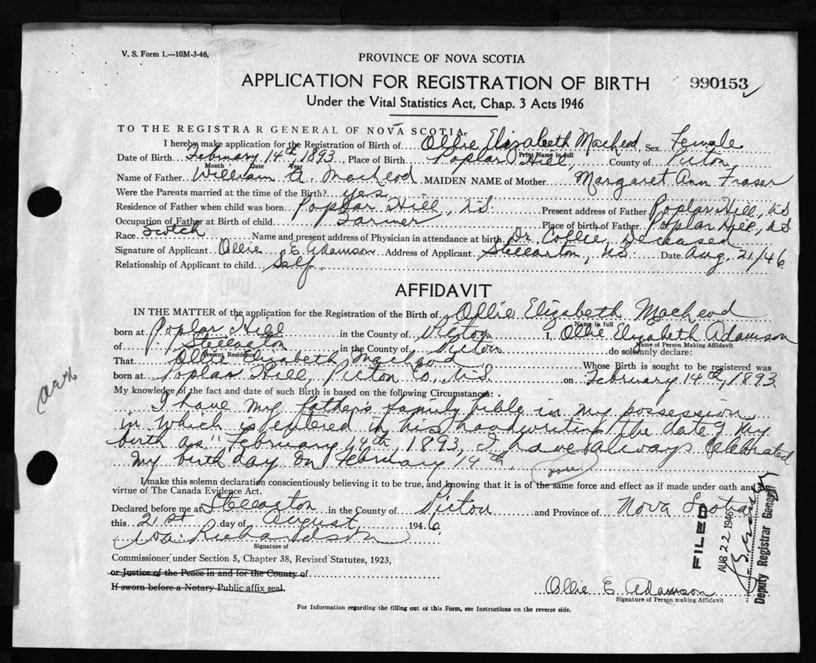 V. S. Form 1.—10M-3-46,
PROVINCE OF NOVA SCOTIA
APPLICATION FOR REGISTRATION OF BIRTH 990153
Under the Vital Statistics Act, Chap. 3 Acts 1946
TO THE REGISTRAR GENERAL OF NOVA SCOTIA
I hereby make application for the Registration of Birth of Ollie Elizabeth MacLeod Sex Female
Print Name in full
Date of Birth February 14th, 1893 Place of Birth Poplar Hill, County of Pictou
Month Date Year
Name of Father William A. MacLeod MAIDEN NAME of Mother Margaret Ann Fraser
Were the Parents married at the time of the Birth? yes
Residence of Father when child was born Poplar Hill, N.S. Present address of Father Poplar Hill, N.S
Occupation of Father at Birth of child Farmer Place of birth of Father Poplar Hill, N.S
Race Scotch Name and present address of Physician in attendance at birth Dr. Collie, Deceased
Signature of Applicant Ollie E Adamson Address of Applicant Stellarton, N.S. Date Aug. 21/46
Relationship of Applicant to child Self
AFFIDAVIT
IN THE MATTER of the application for the Registration of the Birth of Ollie Elizabeth MacLeod
Name in full
born at Poplar Hill in the County of Pictou I, Ollie Elizabeth Adamson
Name of Person Making Affidavit
of Stellarton in the County of Pictou do solemnly declare:
Present Residence
That Ollie Elizabeth MacLeod Whose Birth is sought to be registered was
born at Poplar Hill, Pictou Co., N.S on February 14th, 1893
My knowledge of the fact and date of such Birth is based on the following Circumstances:
I have my father's family bible in my possession
in which is entered in his handwriting the date of my
birth as "February 14th 1893, I have always celebrated
my birthday on February 14th.
I make this solemn declaration conscientiously believing it to be true, and knowing that it is of the same force and effect as if made under oath and by
virtue of The Canada Evidence Act.
Declared before me at Stellarton in the County of Pictou and Province of Nova Scotia
this 21st day of August 1946
Richardson
Signature of
Commissioner under Section 5, Chapter 38, Revised Statutes, 1923,
or Justice of the Peace in and for the County of
If sworn before a Notary Public affix seal,
Ollie E. Adamson
Signature of Person making Affidavit
FILED
AUG 22 1946
Deputy Registrar General
For Information regarding the filling out of this Form, see Instructions on the reverse side.